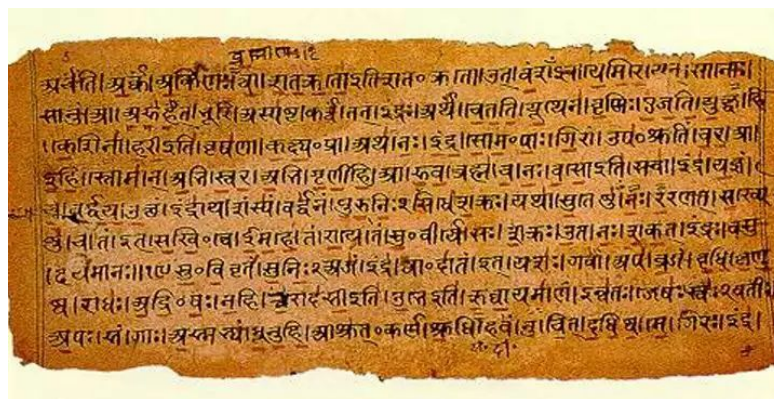 अर्चंति।अर्कं।अर्किणः।ब्रह्माणः।त्वा।शतक्रतो॰इतिशत॰क्रतो।उत्।वंशंऽइव।येमिरे।यत्।सानोः।
सानुं।आ।अरुहत्।भूरि।अस्पष्ट।कर्त्वं।तत्।इंद्रः।अर्थं।चेतति।यूथेन।वृष्णिः।एजति।युक्ष्व।हि
।केशिना।हरीऽइति।वृषणा।कक्ष्य॰प्रा।अथ।नः।इंद्र।सोम॰पाः।गिरां।उप॰श्रुतिं।चर।आ।
इहि।स्तोमान्।अभि।स्वर।अभि।गृणीहि।आ।रुव।ब्रह्म।च।नः।वसोऽइति।सचा।इंद्र।यज्ञं।
च।वर्द्धय।उक्थं।इंद्राय।शंस्यं।वर्द्धनं।पुरुनिःऽसिधे।शक्रः।यथा।सुतेषु।नः।ररणत्।सख्ये
षु।च।तं।इत्।सखि॰त्वे।ईमहे।तं।राये।तं।सु॰वीर्ये।सः।शक्रः।उत।नः।शकत्।इंद्रः।वसु
।दयमानः।सु॰विवृतं।सुनिःऽअजं।इंद्र।त्वा॰दातं।इत्।यशः।गवां।अप।व्रजं।वृधि।कृणु
ष्व।राधः।अद्रि॰वः।नहि।त्वा।रोदसीऽइति।उभेऽइति।ऋघायमाणं।इन्वतः।जेषः।स्वःऽवतीः।
अपः।सं।गाः।अस्मभ्यं।धूनुहि।आश्रुत्॰कर्ण।श्रुधि।हवं।नु।चित्।दधिष्व।मे।गिरः।इंद्र।